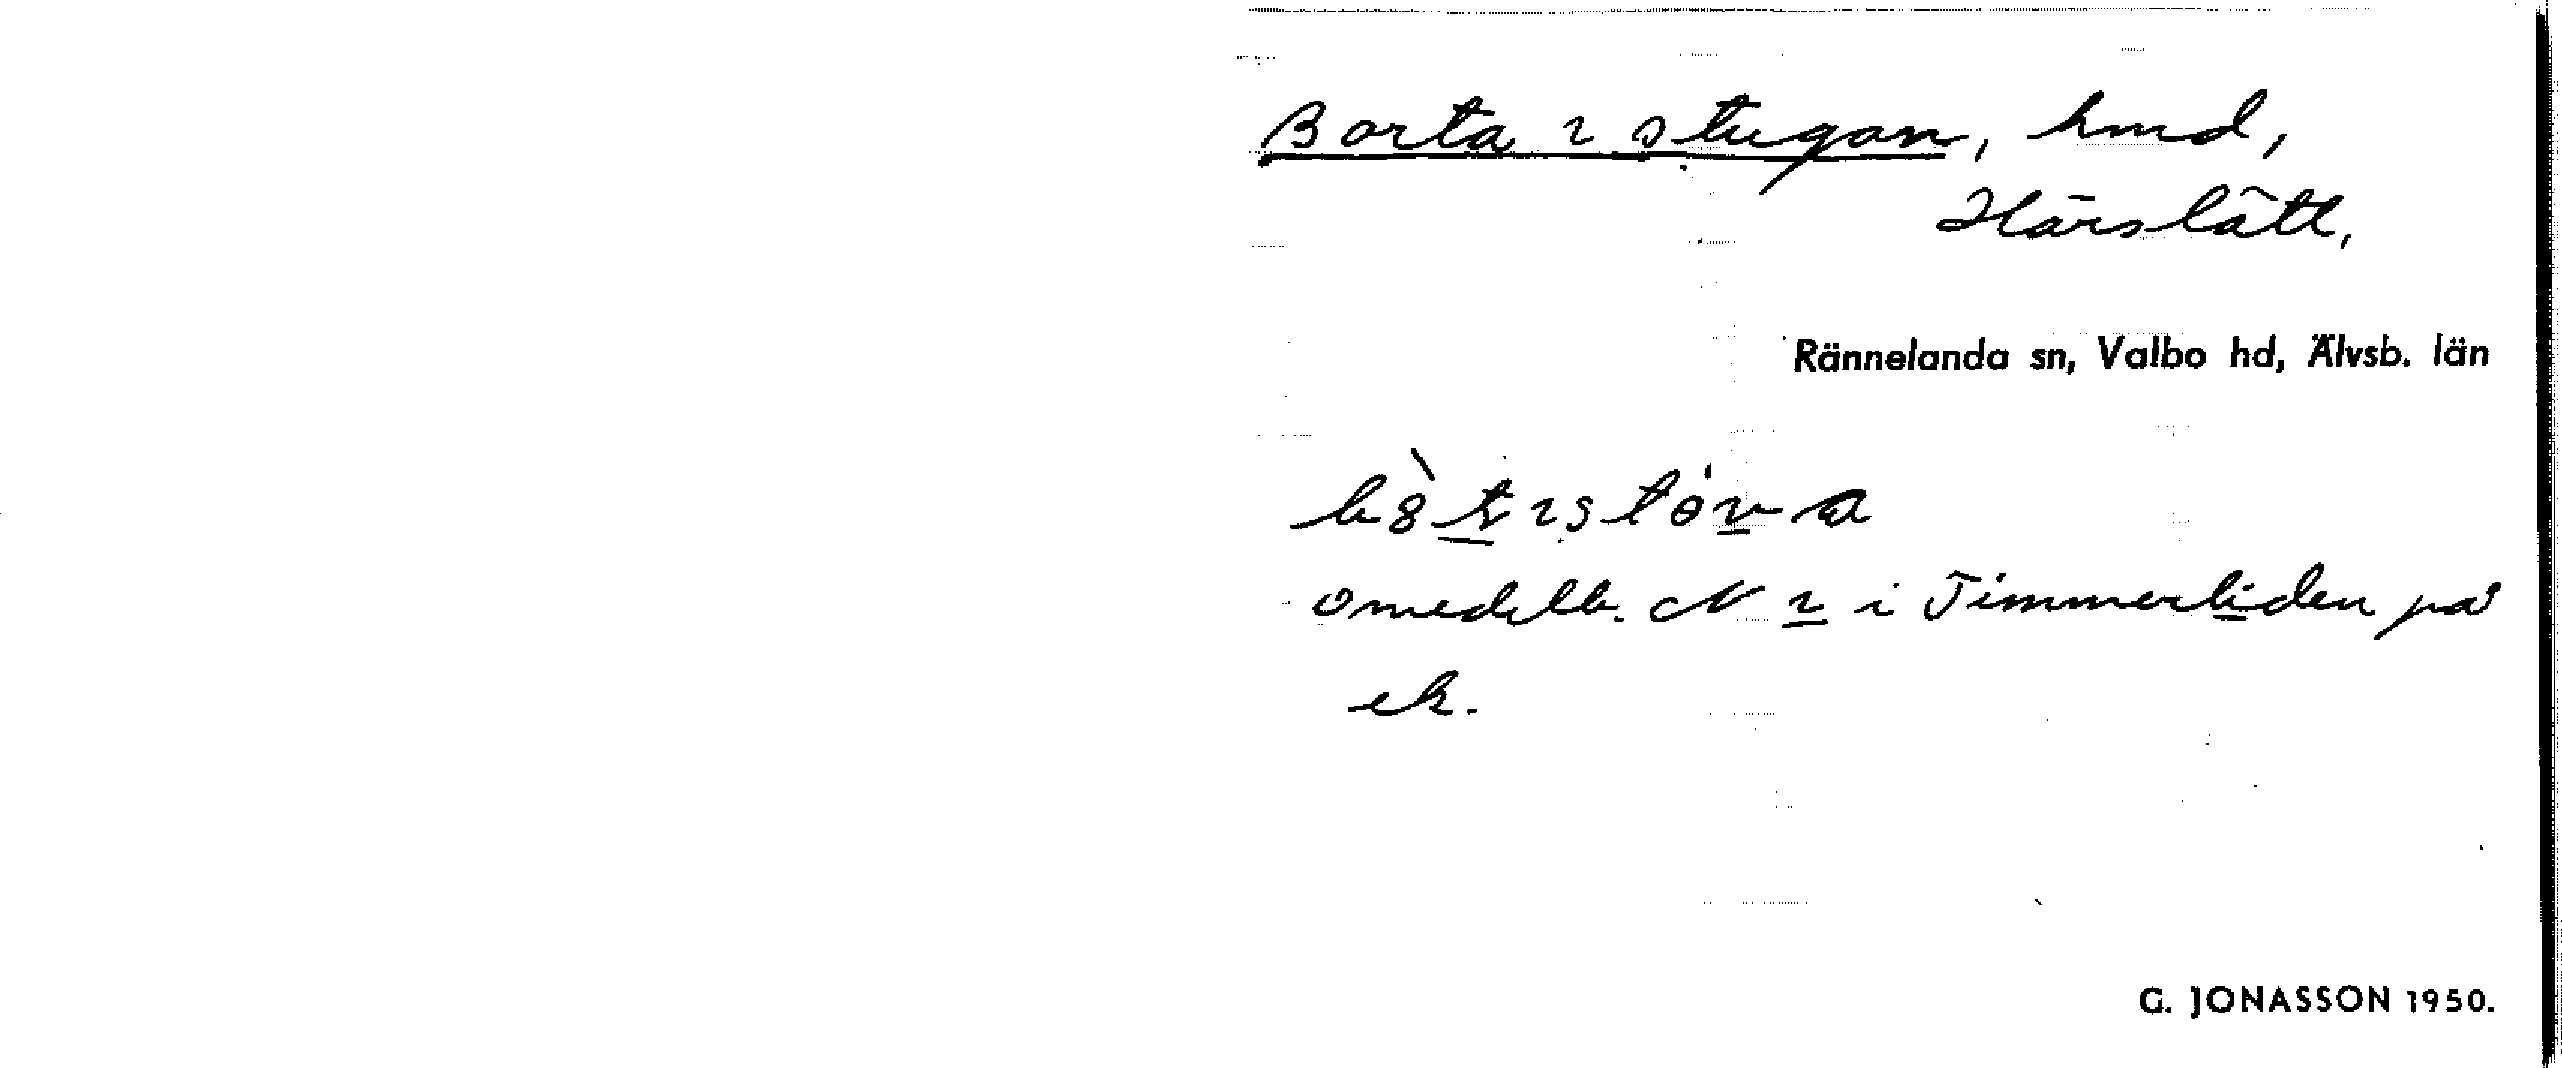 Borta i stugan, hmd,
Härslätt,
Rännelanda sn, Valbo hd, Älvsb. län
omedelb. N i i Timmerliden på
ek.
G. JONASSON 1950.